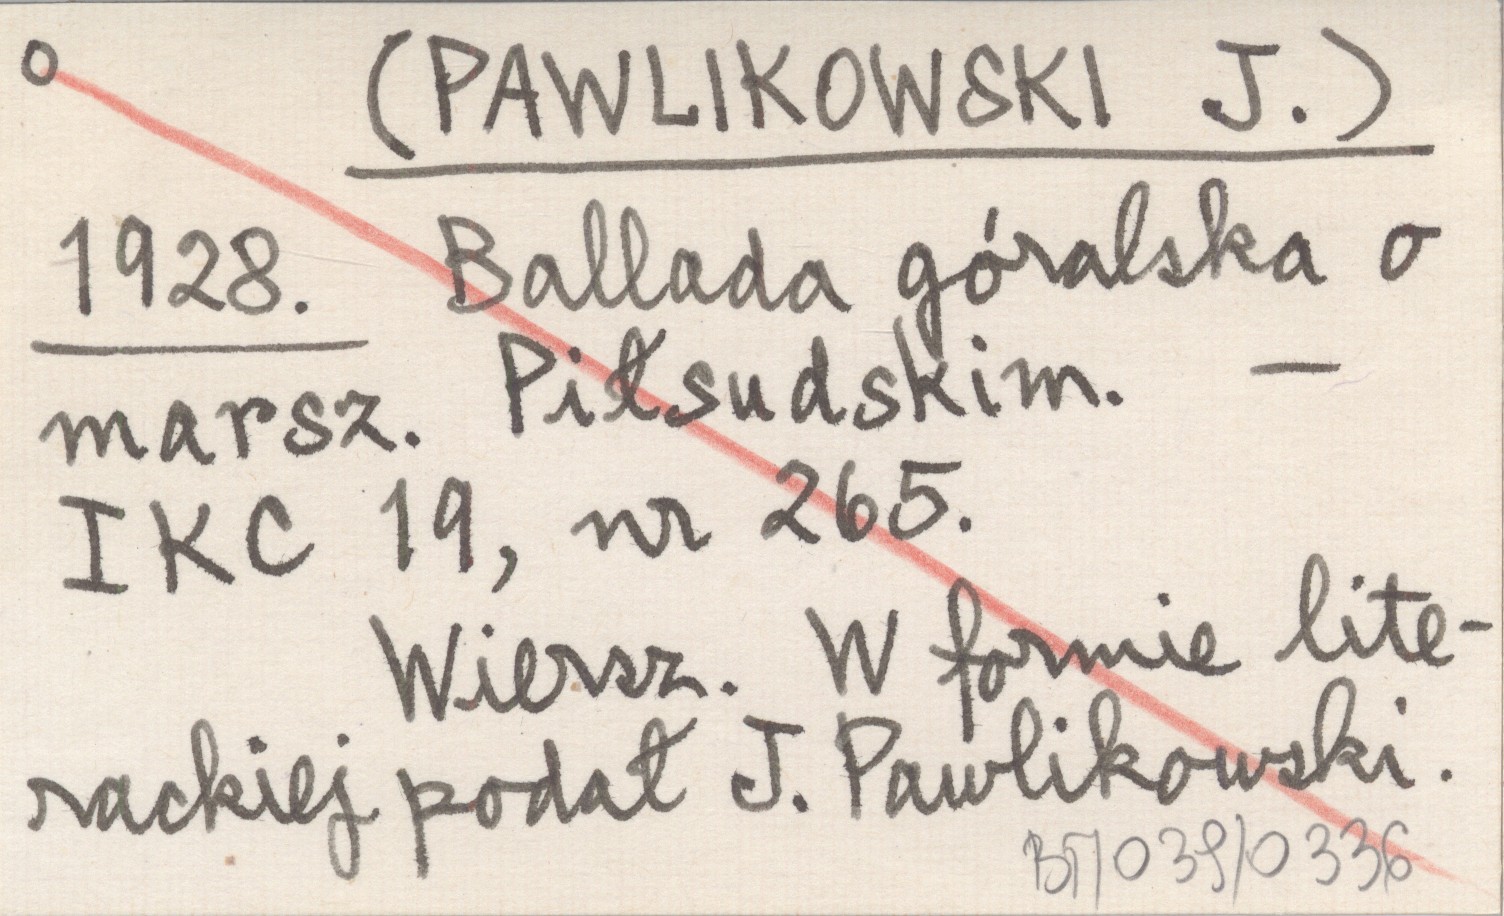 o (PAWLIKOWSKI J.)
1928. Ballada góralska o
marsz. Piłsudskim. —
IKC 19, nr 265.
Wiersz. W formie lite-
rackiej podał J. Pawlikowski.
0336